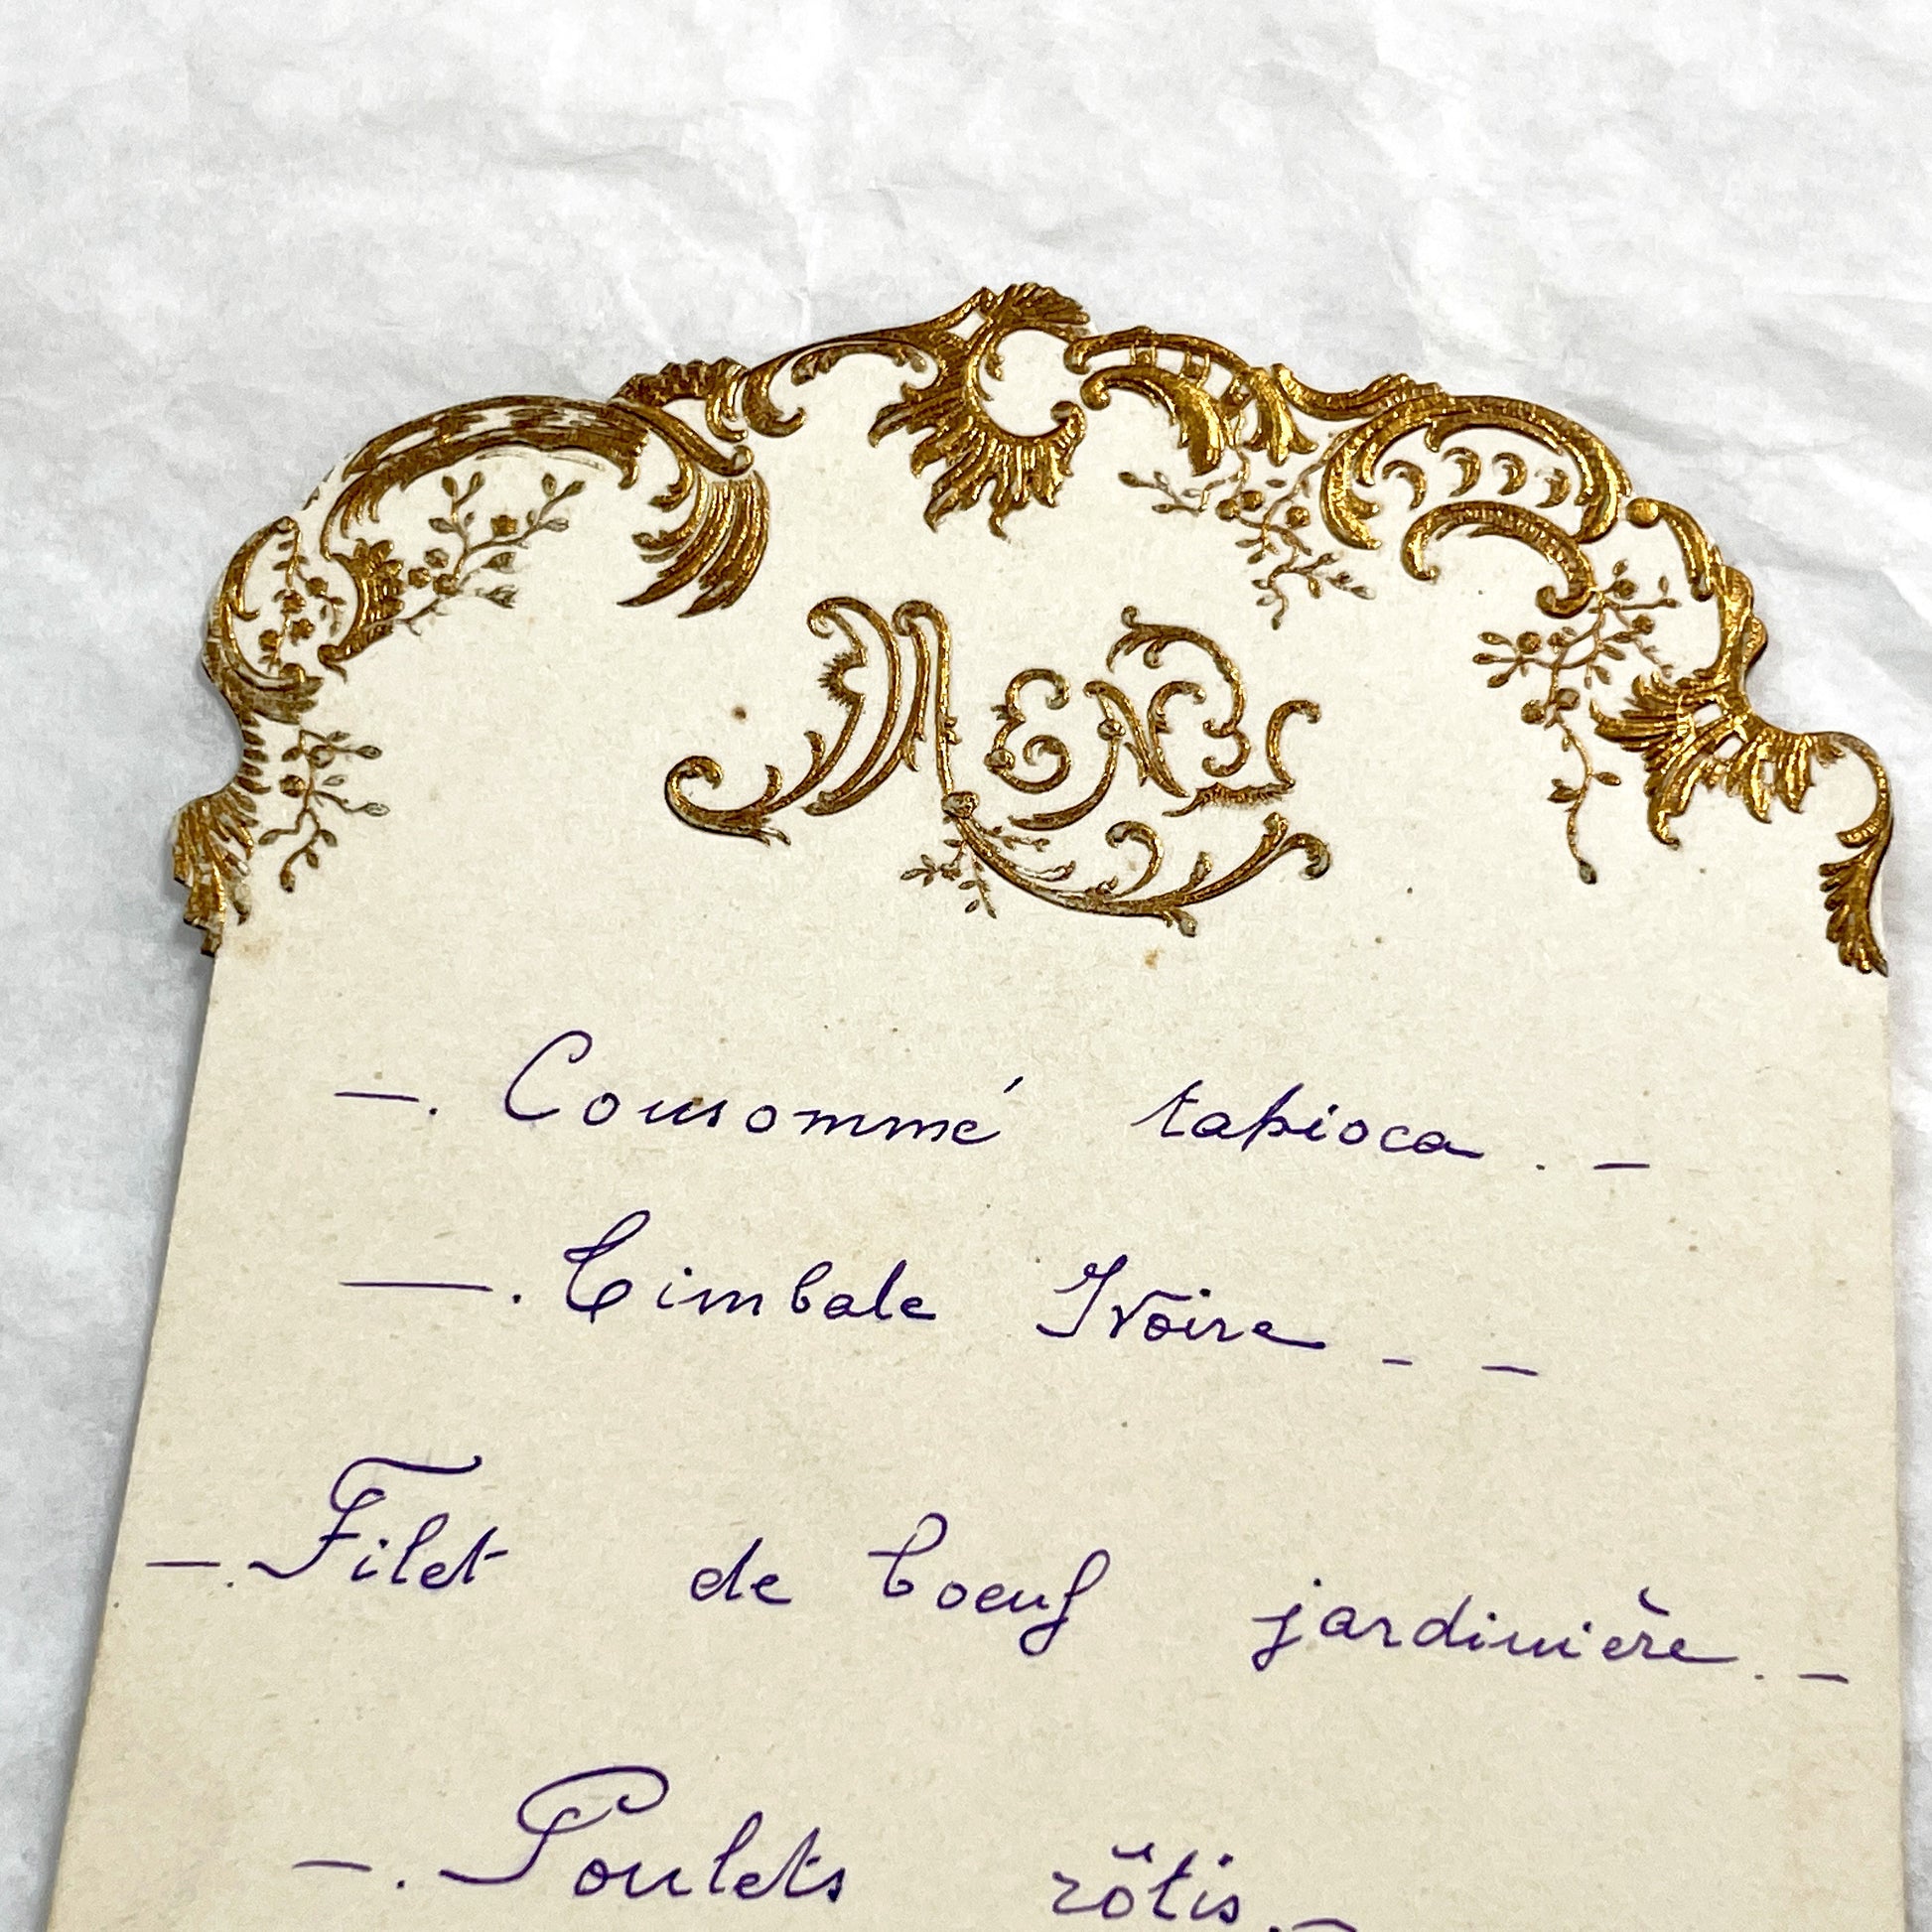 MENU
—. Consommé tapioca. —
—. Timbale Ivoire - —
—. Filet de boeuf jardinière. —
—. Poulets rôtis. —